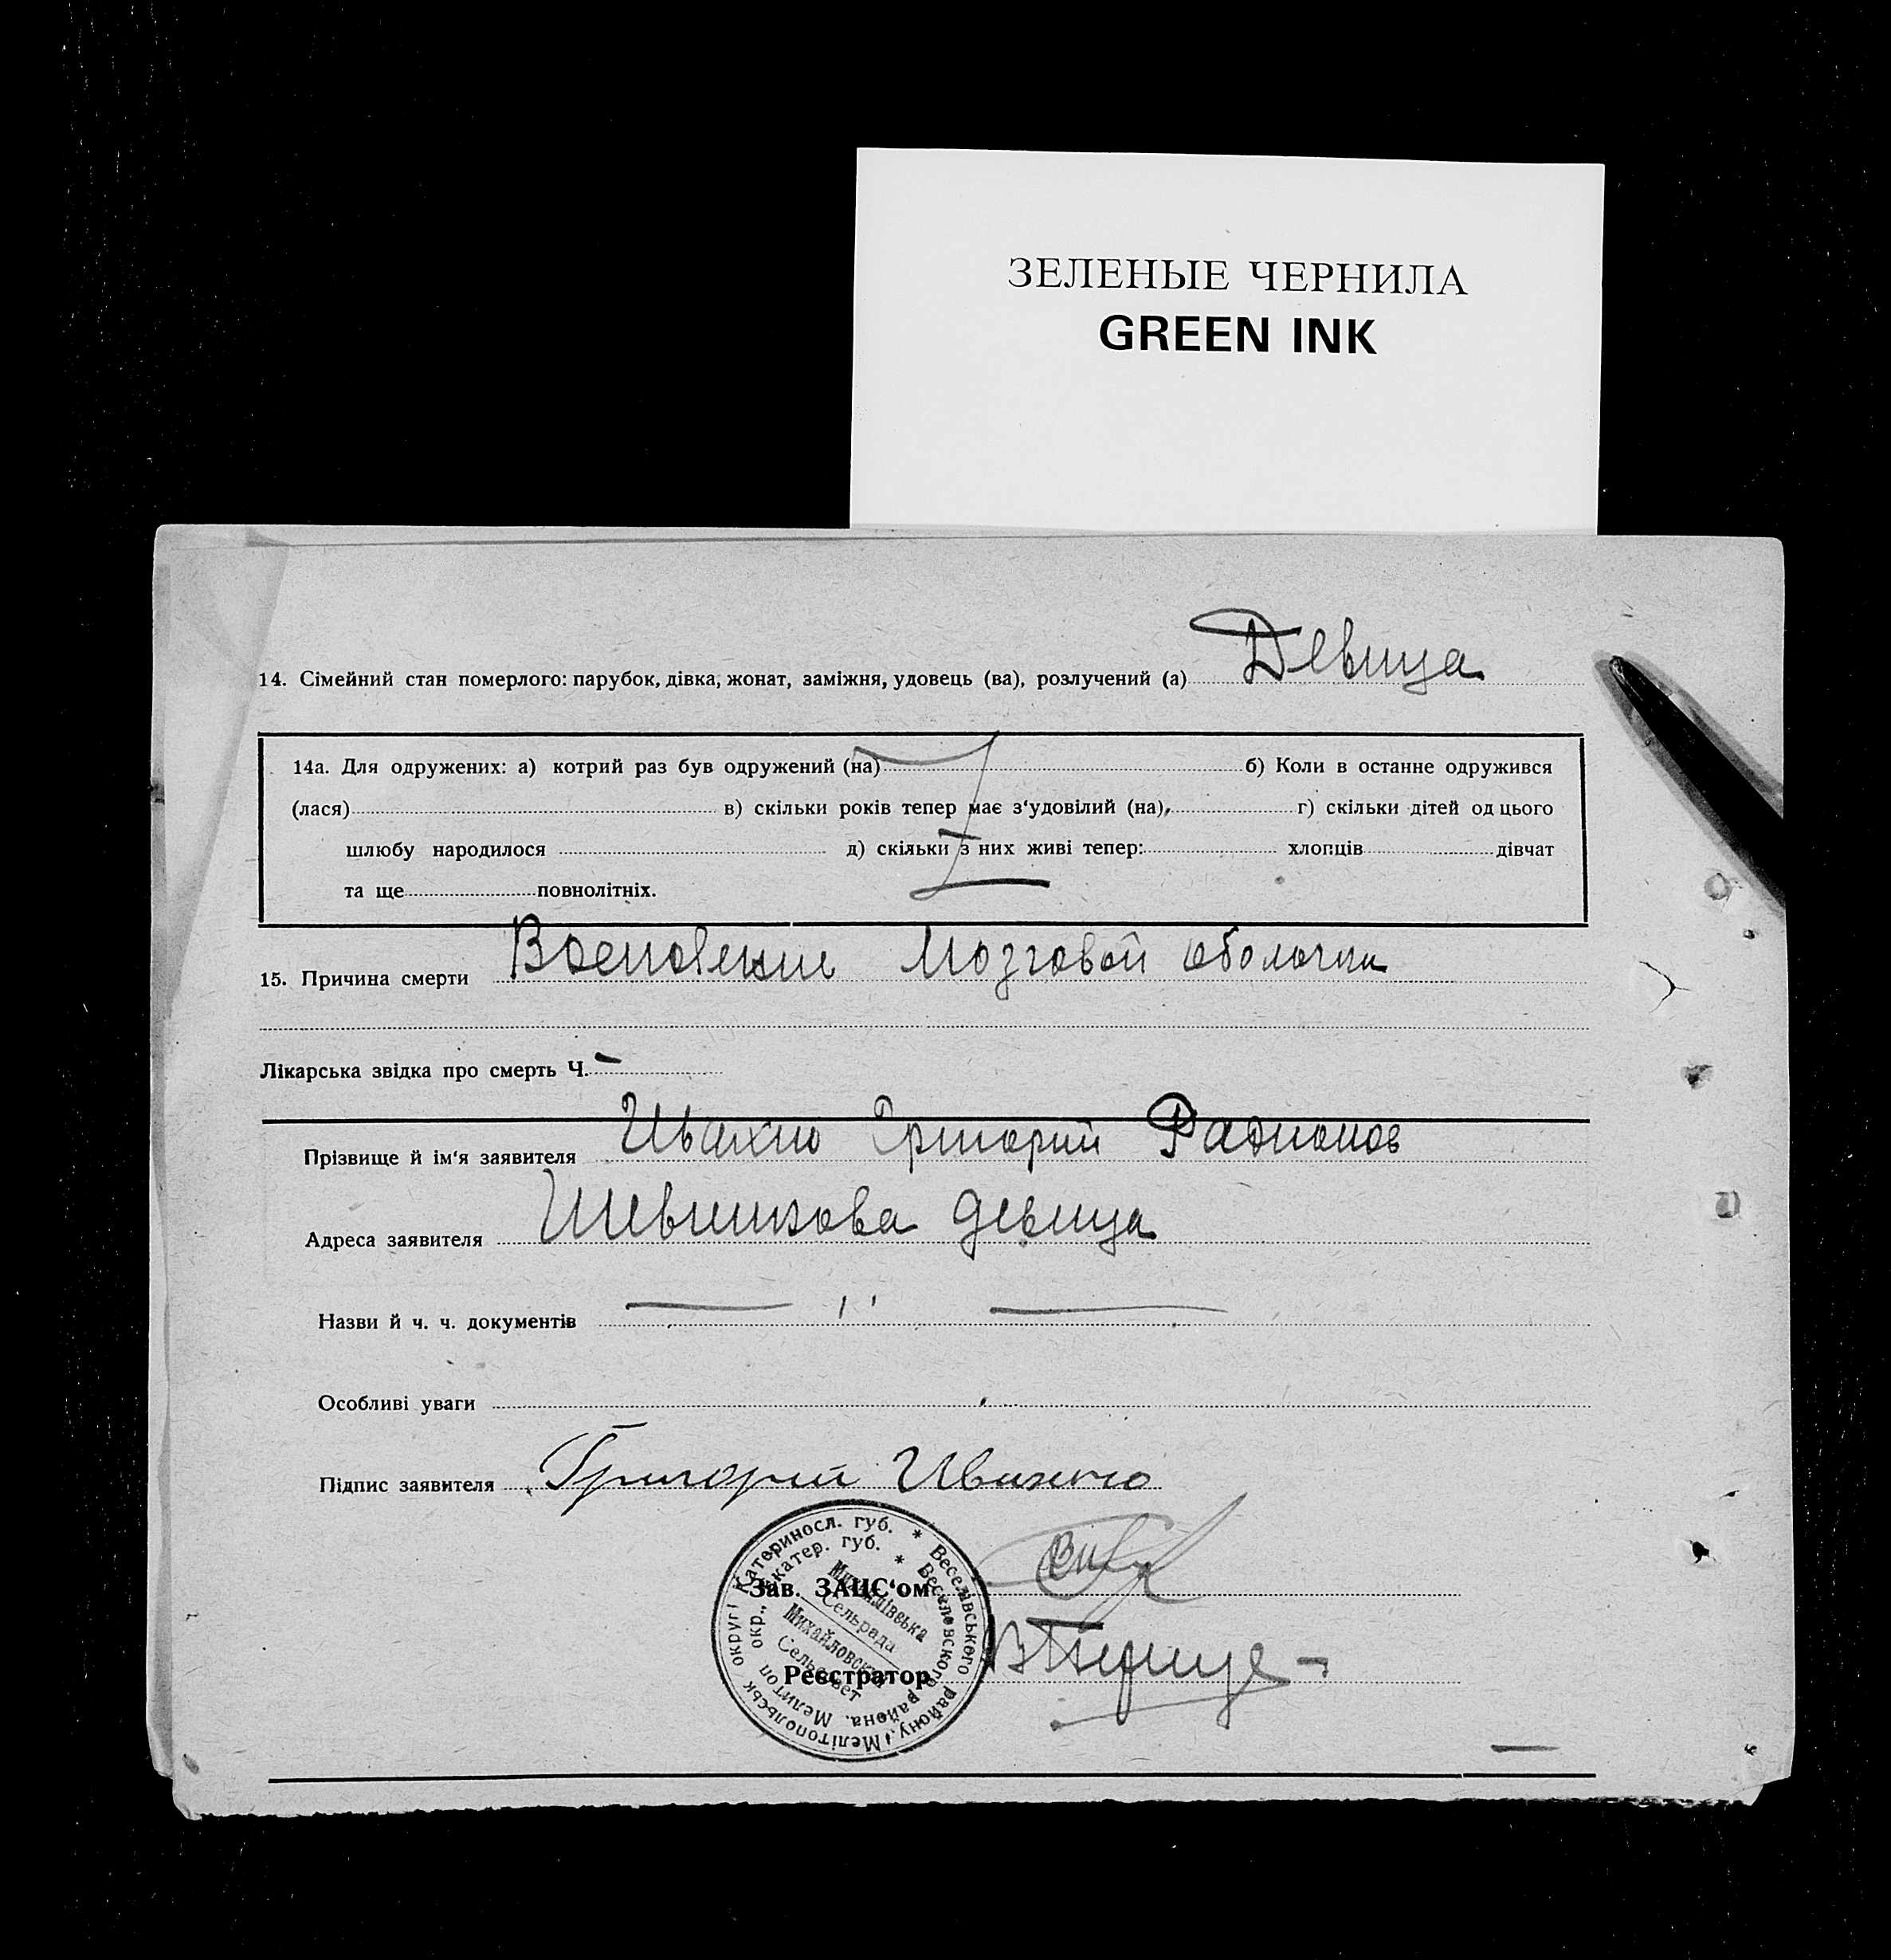 ЗЕЛЕНЫЕ ЧЕРНИЛА
GREEN INK
14. Сімейний стан померлого: парубок, дівка, жонат, заміжня, удовець (ва), розлучений (а) Девица
14а. Для одружених: а) котрий раз був одружений (на) б) Коли в останне одружився
(лася) в) скільки років тепер має з‘удовілий (на), г) скільки дітей од цього
шлюбу народилося д) скільки з них живі тепер: хлопців дівчат
та ще повнолітніх.
15. Причина смерти Мозговой оболочки
Лікарська звідка про смерть Ч. –
Прізвище й ім‘я заявителя Ивахно Григорий Радионов
Адреса заявителя девица
Назви й ч. ч. документів — ,, —
Особливі уваги
Підпис заявителя Григорий Ивахно
Зав. ЗАЦС‘ом
Реєстратор
Веселівського району, Мелітопольськ округі Катериносл. губ. *
Веселовского района. Мелитоп окр., Екатер. губ. *
Михайлівська
Сельрада
Сельсовет